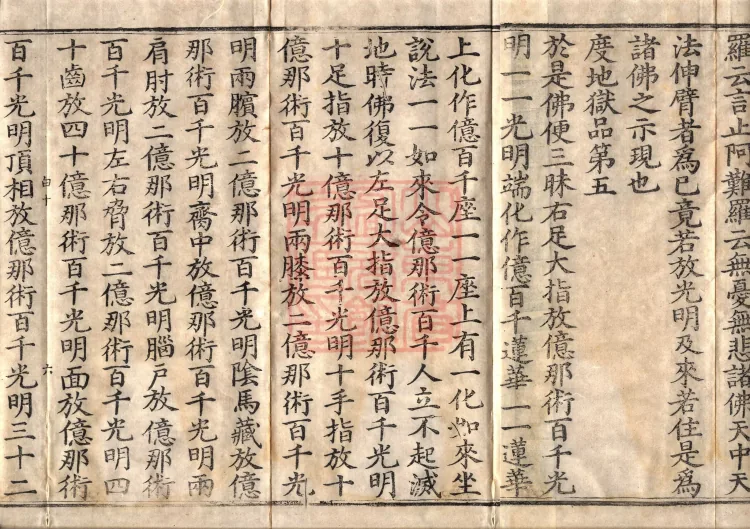 羅云言止阿難羅云無憂無悲諸佛天中天
法伸臂者為已竟若放光明及來若住是為
諸佛之示現也
度地獄品第五
於是佛便三昧右足大指放億那術百千光
明一一光明端化作億百千蓮華一一蓮華
上化作億百千座一一座上有一化如來坐
說法一一如來令億那術百千人立不起滅
地時佛復以左足大指放億那術百千光明
十足指放十億那術百千光明十手指放十
億那術百千光明兩膝放二億那術百千光
明兩髕放二億那術百千光明陰馬藏放億
那術百千光明齋中放億那術百千光明兩
肩肘放二億那術百千光明腦戶放億那術
百千光明左右脅放二億那術百千光明四
十齒放四十億那術百千光明面放億那術
白十 六
百千光明頂相放億那術百千光明三十二